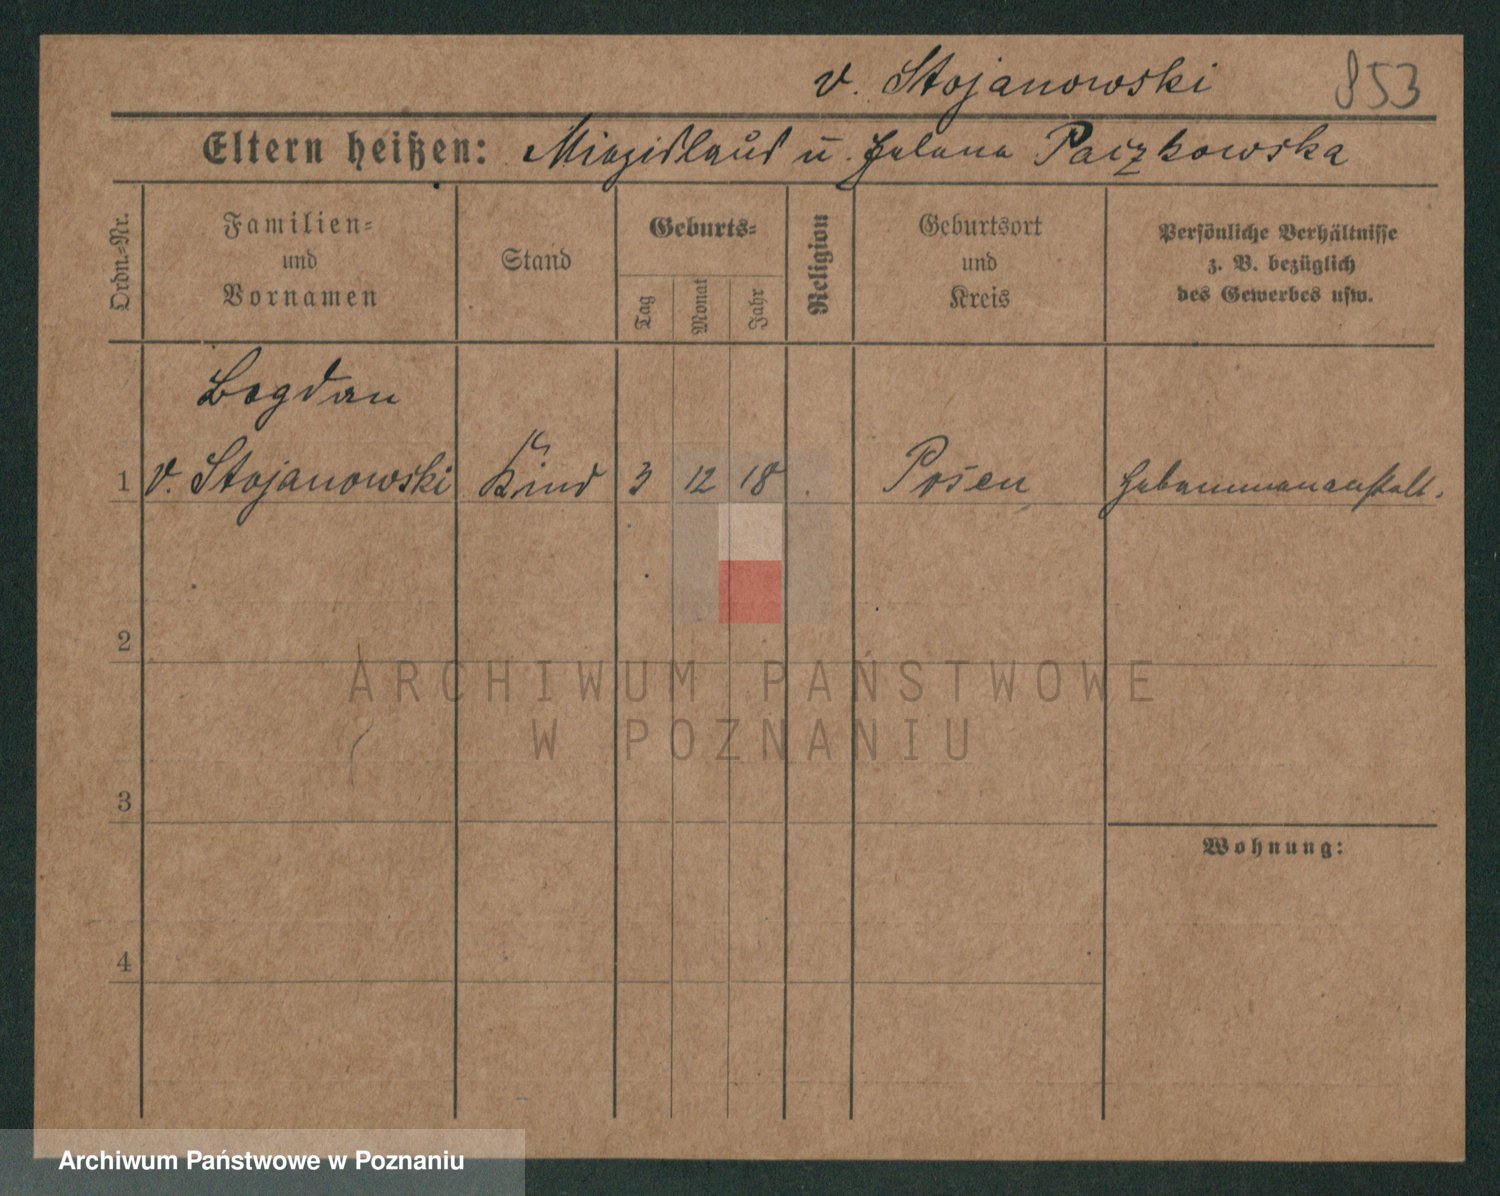 v. Stojanowski 853
Eltern heißen: u. Helena Paczkowska
Ordn.-Nr.
Familien-
und
Vornamen
Stand
Geburts-
Tag
Monat
Jahr
Religion
Geburtsort
und
Kreis
Persönliche Verhältnisse
z. B. bezüglich
des Gewerbes usw.
Bogdan
1 v. Stojanowski Kind 3 12 18 Posen Hebammenanstalt.
2
ARCHIWUM PAŃSTWOWE
W POZNANIU
3
Wohnung:
4
Archiwum Państwowe w Poznaniu